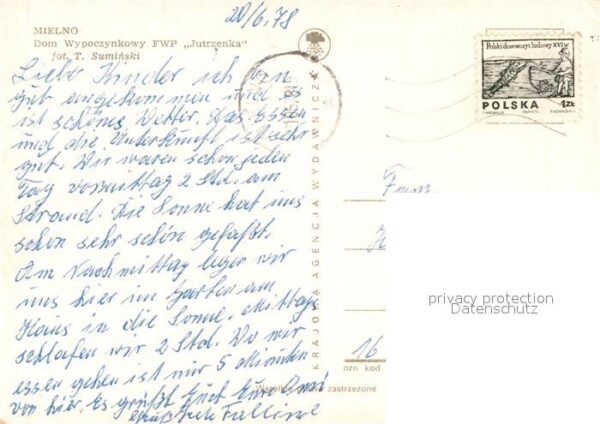 20/6.78
MIELNO
Dom Wypoczynkowy FWP „Jutrzenka"
fot. T. Sumiński
Liebe Kinder ich bin
gut angekommen und es
ist schönes Wetter. Das Essen
und die Unterkunft ist sehr
gut. Wir waren schon jeden
Tag vormittag 2 Std. am
Strand. Die Sonne hat uns
schon sehr schön gefaßt.
Am Nachmittag legen wir
uns hier im Garten am
Haus in die Sonne. Mittags
schlafen wir 2 Std. Wo wir
essen gehen ist nur 5 Minuten
von hier. Es grüßt Euch Eure Omi
Gruß
KRAJOWA AGENCJA WYDAWNICZA
Polski drzeworyt ludowy XVI w.
POLSKA 1 ZŁ
Fam.
16
ozn kod.
zastrzeżone
privacy protection
Datenschutz